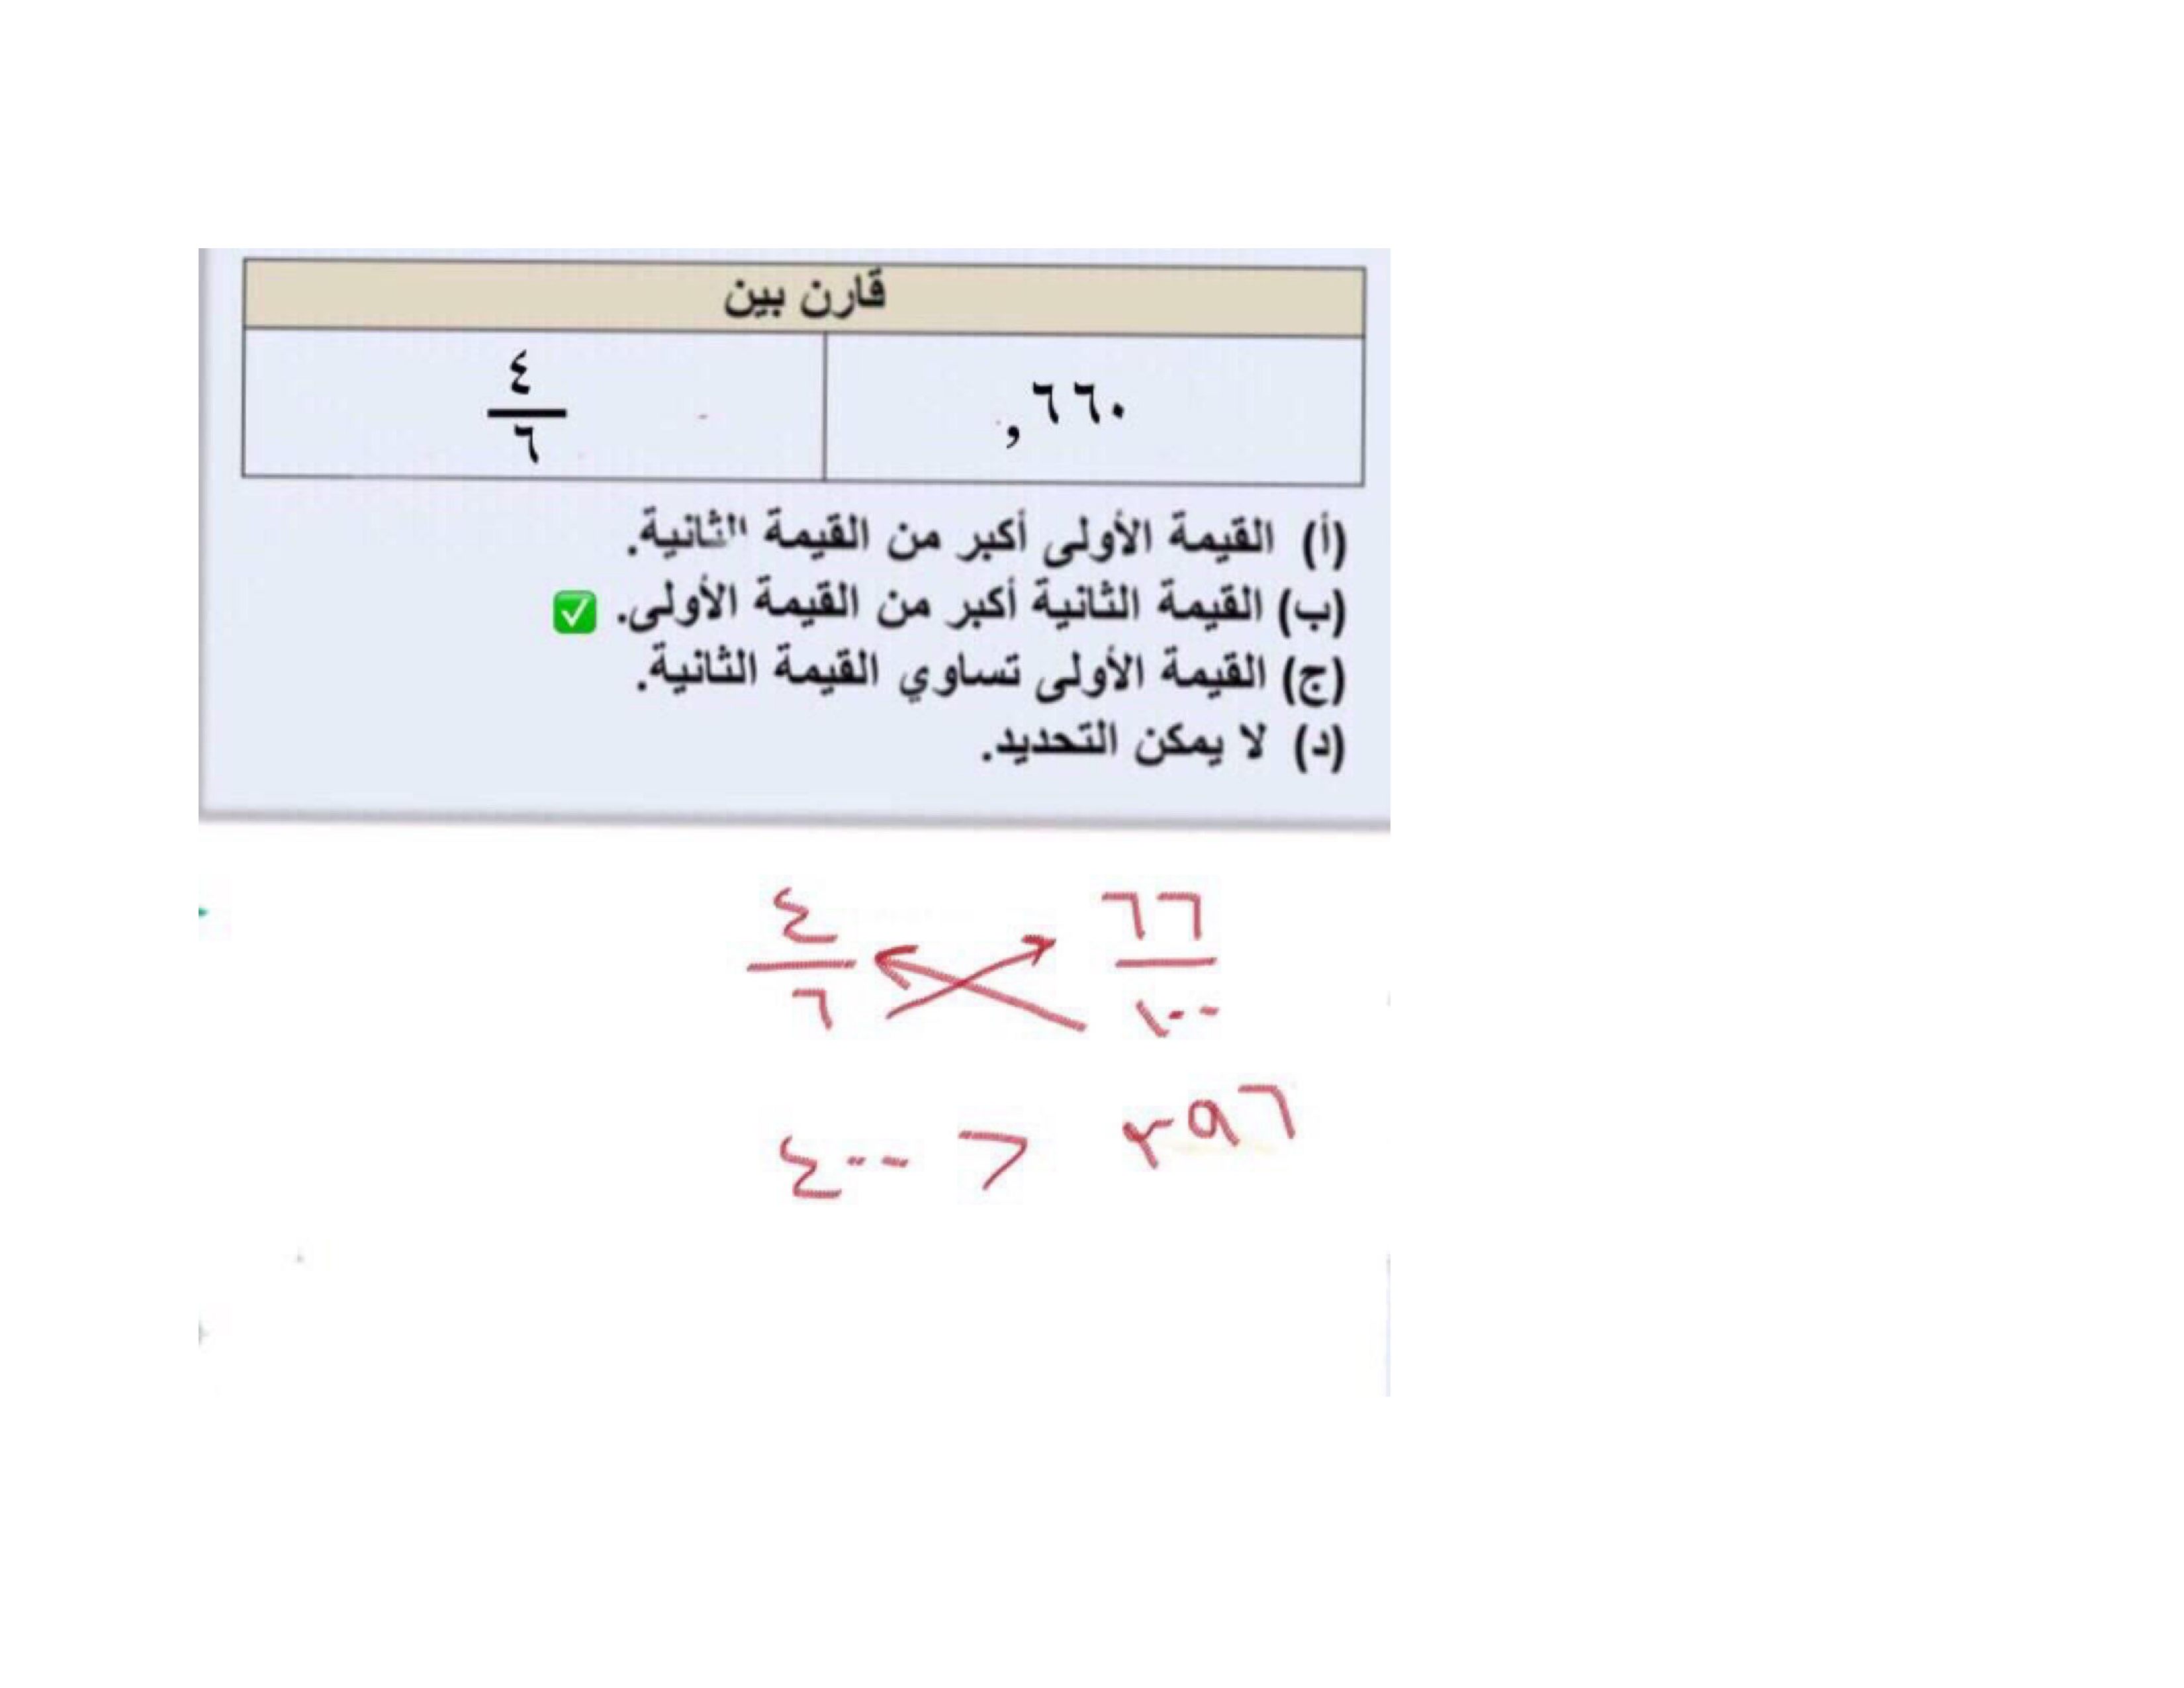 قارن بين
,٦٦٠
٤
٦
(أ) القيمة الأولى أكبر من القيمة الثانية.
(ب) القيمة الثانية أكبر من القيمة الأولى. ✅
(ج) القيمة الأولى تساوي القيمة الثانية.
(د) لا يمكن التحديد.
٤ ٦٦
٦ ١٠٠
٤٠٠ > ٣٩٦